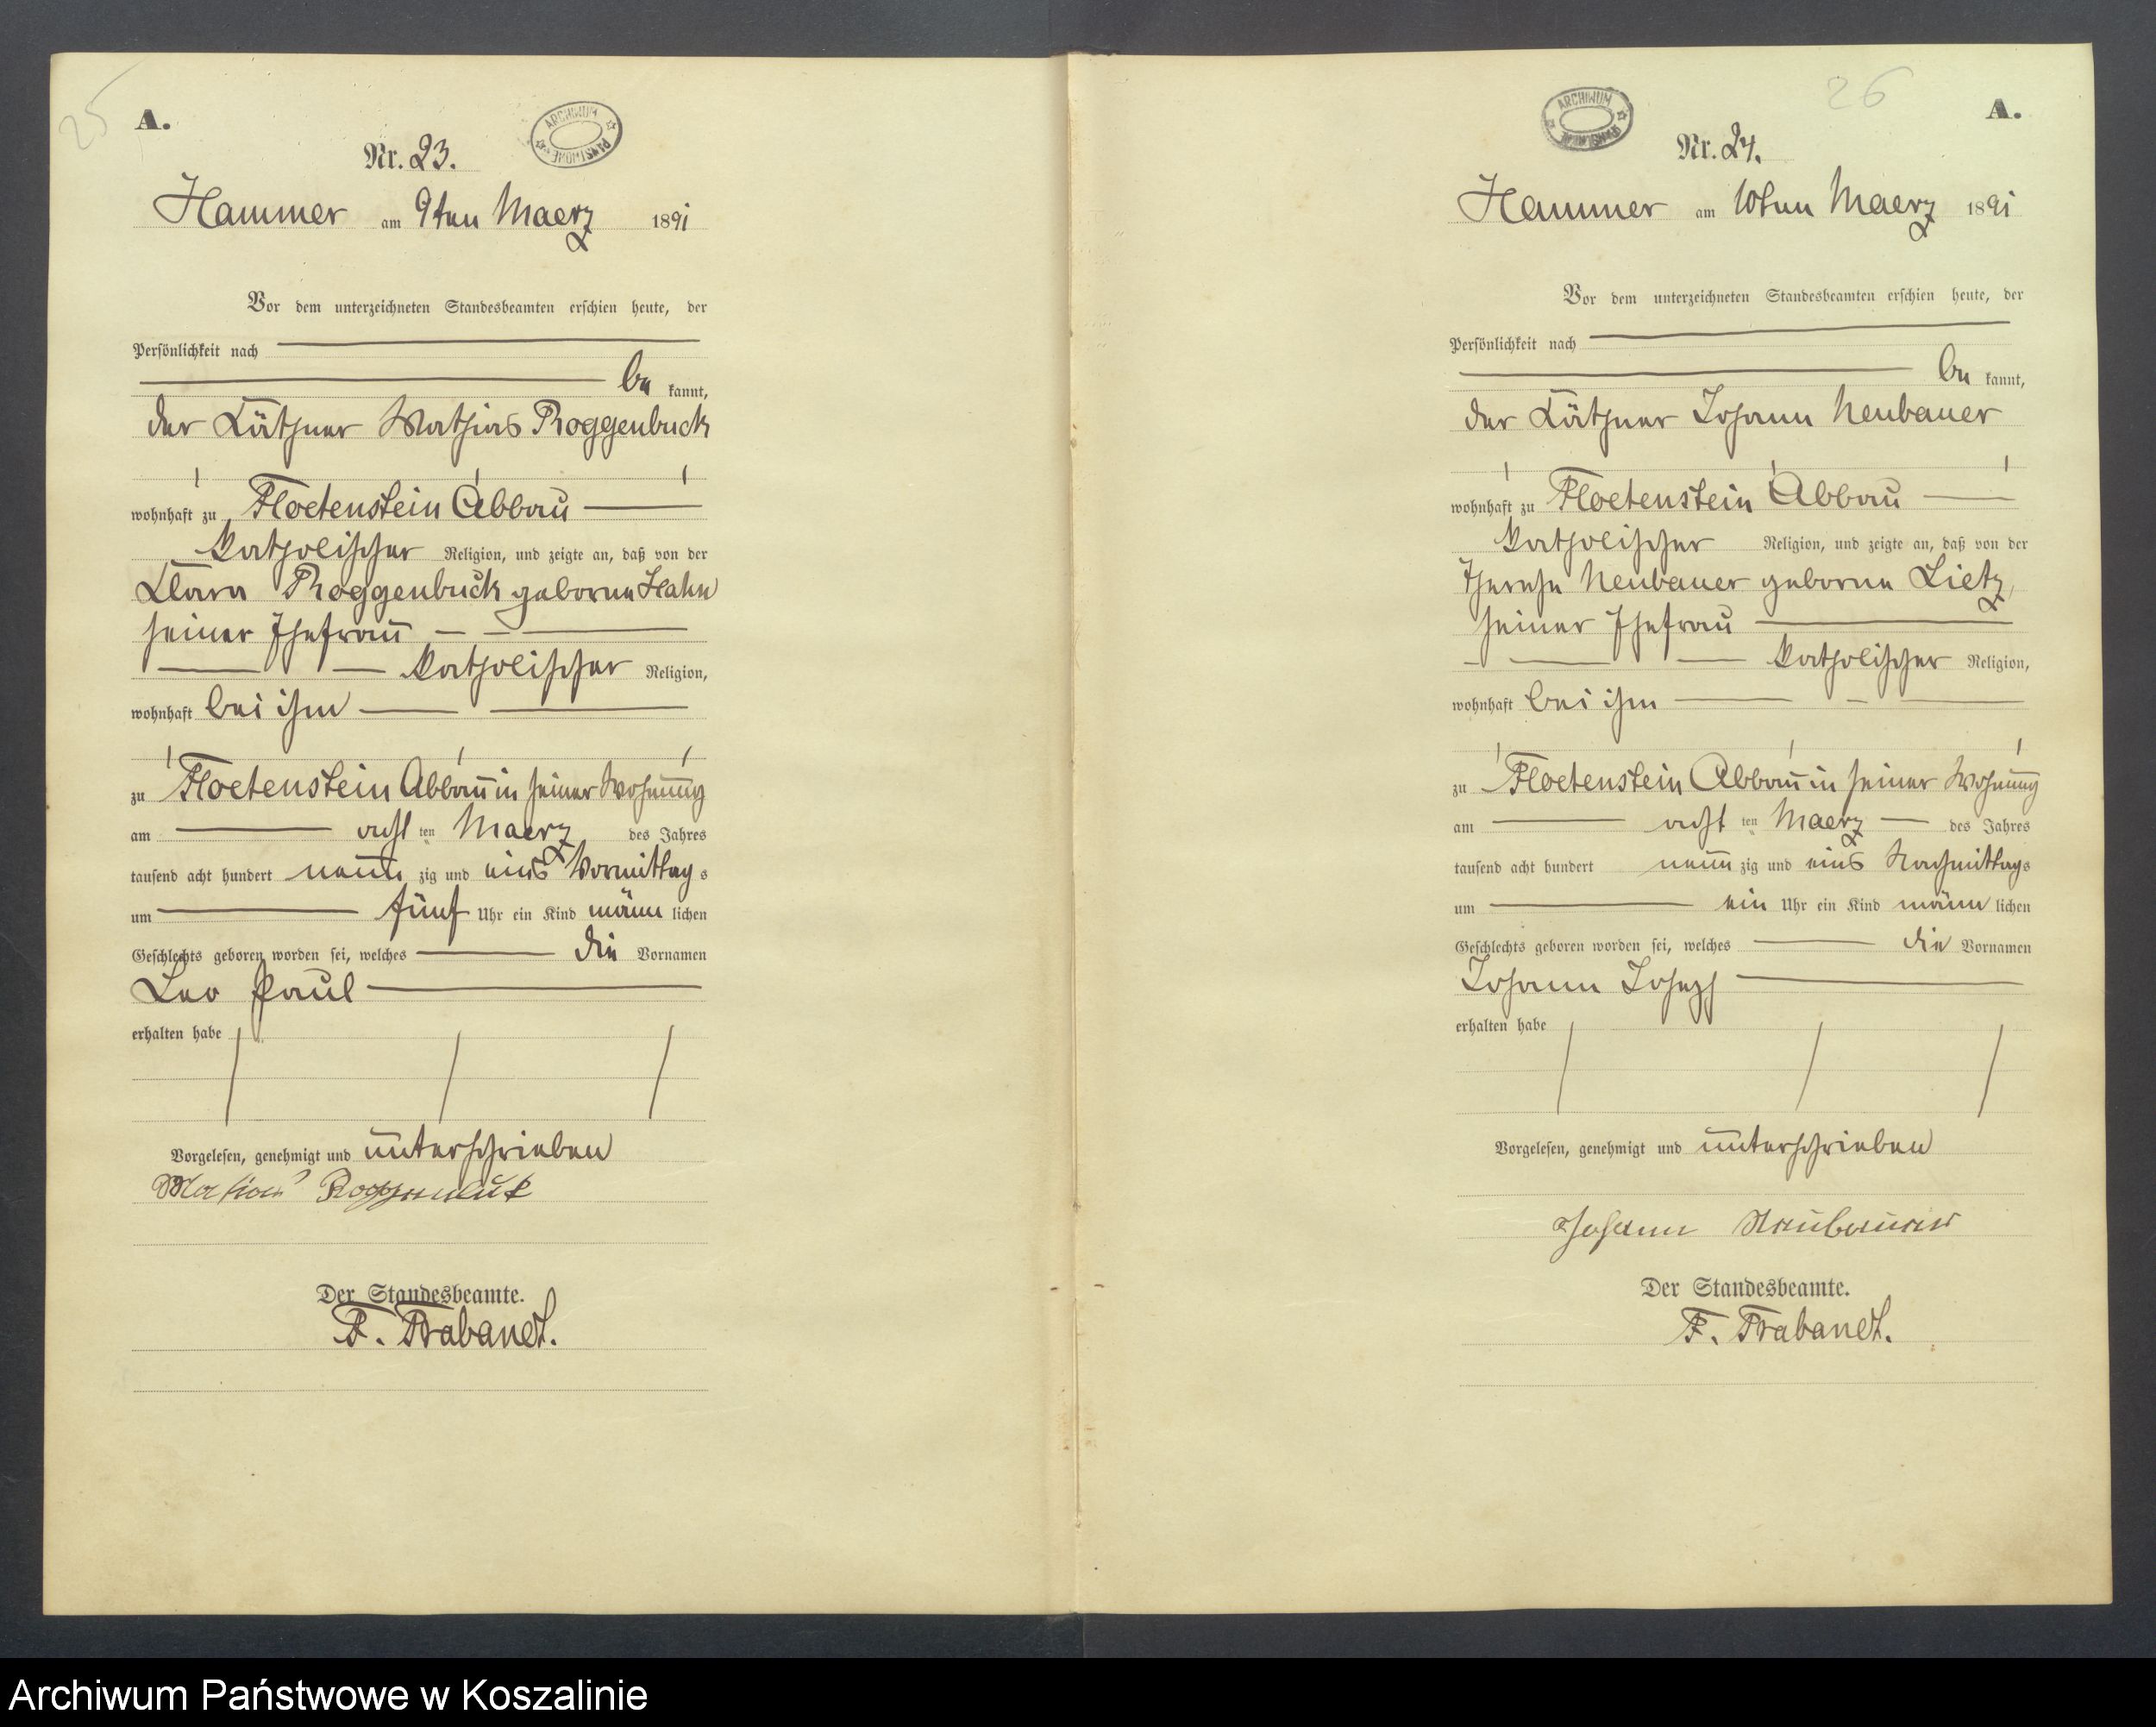 25
A.
Nr. 23.
ARCHIWUM PAŃSTWOWE
Hammer am 9ten Maerz 1891
Vor dem unterzeichneten Standesbeamten erschien heute, der
Persönlichkeit nach
be kannt,
der Käthner Mathias Roggenbuck
wohnhaft zu Floetenstein Abbau
katholischer Religion, und zeigte an, daß von der
Klara Roggenbuck geborne Hahn
seiner Ehefrau
katholischer Religion,
wohnhaft bei ihm
zu Floetenstein Abbau in seiner Wohnung
am acht ten Maerz des Jahres
tausend acht hundert neun zig und eins Vormittag s
um fünf Uhr ein Kind männ lichen
Geschlechts geboren worden sei, welches die Vornamen
Leo Paul
erhalten habe
Vorgelesen, genehmigt und unterschrieben
Matias Roggenbuck
Der Standesbeamte.
F. Trabandt.
26
A.
ARCHIWUM PAŃSTWOWE
Nr. 24.
Hammer am 10ten Maerz 1891
Vor dem unterzeichneten Standesbeamten erschien heute, der
Persönlichkeit nach
be kannt,
der Käthner Johann Neubauer
wohnhaft zu Floetenstein Abbau
katholischer Religion, und zeigte an, daß von der
Therese Neubauer geborne Lietz,
seiner Ehefrau
katholischer Religion,
wohnhaft bei ihm
zu Floetenstein Abbau in seiner Wohnung
am acht ten Maerz des Jahres
tausend acht hundert neun zig und eins Nachmittags
um ein Uhr ein Kind männ lichen
Geschlechts geboren worden sei, welches die Vornamen
Johann Joseph
erhalten habe
Vorgelesen, genehmigt und unterschrieben
Johann Neubauer
Der Standesbeamte.
F. Trabandt.
Archiwum Państwowe w Koszalinie